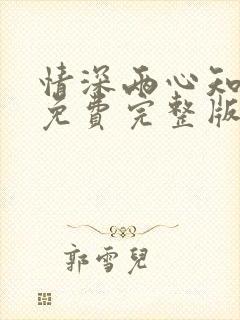 情深两心知
免費完整版
郭雪兒